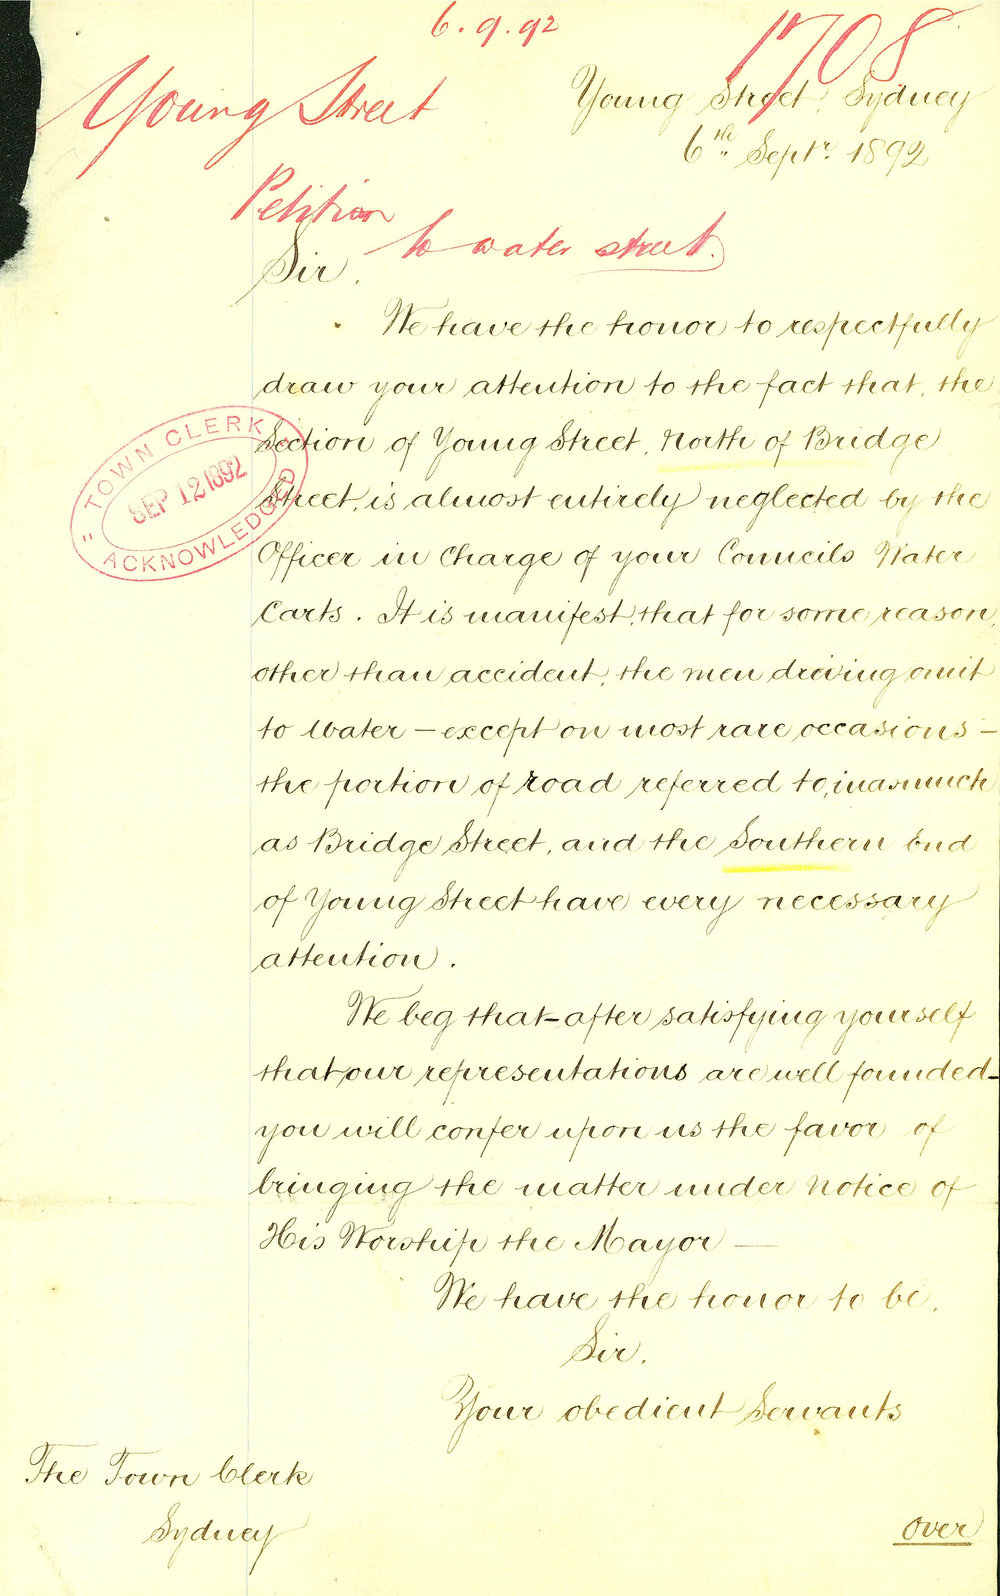 6.9.92
1708
Young Street
Young Street, Sydney
6th Septr. 1892
Petition
to water street.
Sir,
We have the honor to respectfully
draw your attention to the fact that, the
Section of Young Street, North of Bridge
Street, is almost entirely neglected by the
Officer in Charge of your Councils Water
Carts. It is manifest, that for some reason,
other than accident, the men driving omit
to Water – except on most rare occasions –
the portion of road referred to, inasmuch
as Bridge Street, and the Southern End
of Young Street have every necessary
attention.
TOWN CLERK
SEP 12 1892
ACKNOWLEDGED
We beg that – after satisfying yourself
that our representations are well founded –
you will confer upon us the favor of
bringing the matter under notice of
His Worship the Mayor —
We have the honor to be,
Sir,
Your obedient Servants
The Town Clerk
Sydney
Over